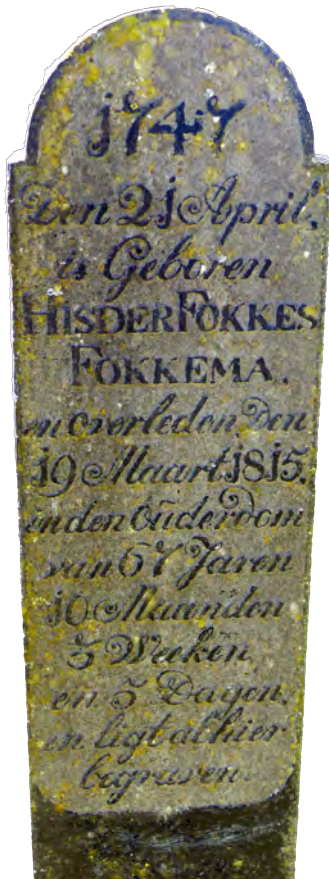 1747
Den 21 April,
is Geboren
HISDER FOKKES
FOKKEMA.
en overleden, Den
19 Maart 1815.
in den Ouderdom
van 67 Jaren
10 Maanden
3 Weeken
en 5 Dagen.
en ligt alhier
begraven